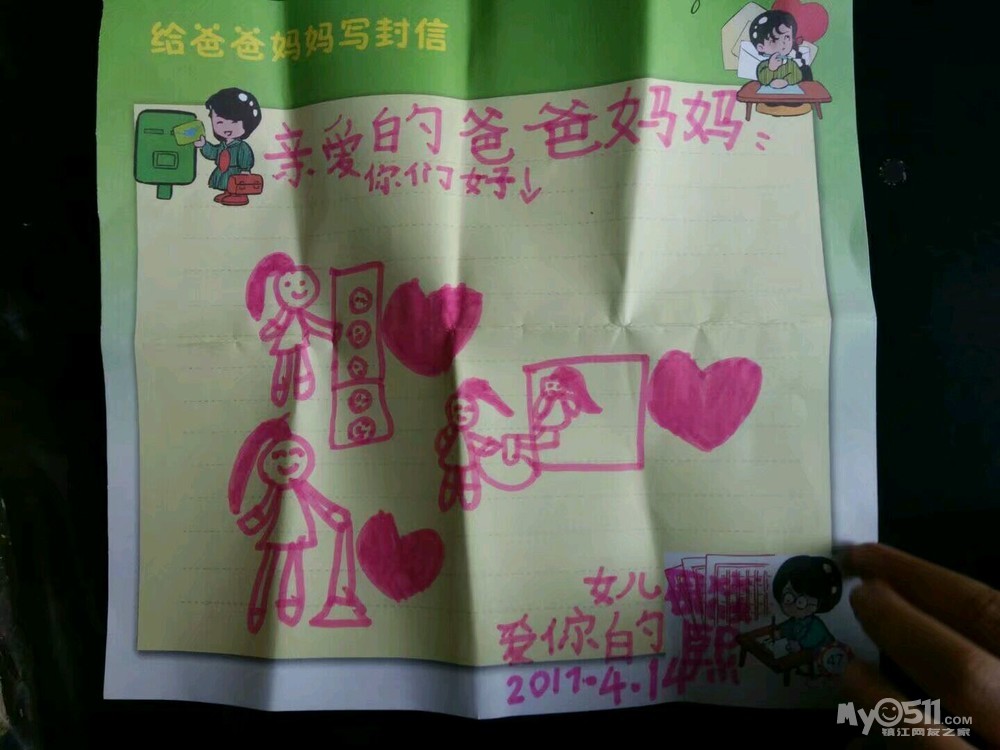 给爸爸妈妈写封信
亲爱的爸爸妈妈:
你们好!
女儿
爱你的
2017.4.14
47
My0511.COM
镇江网友之家